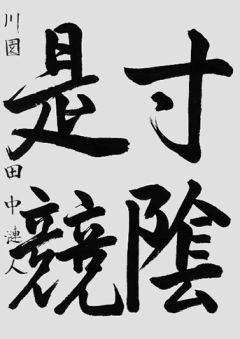 寸陰
是競
川園 田中漣人